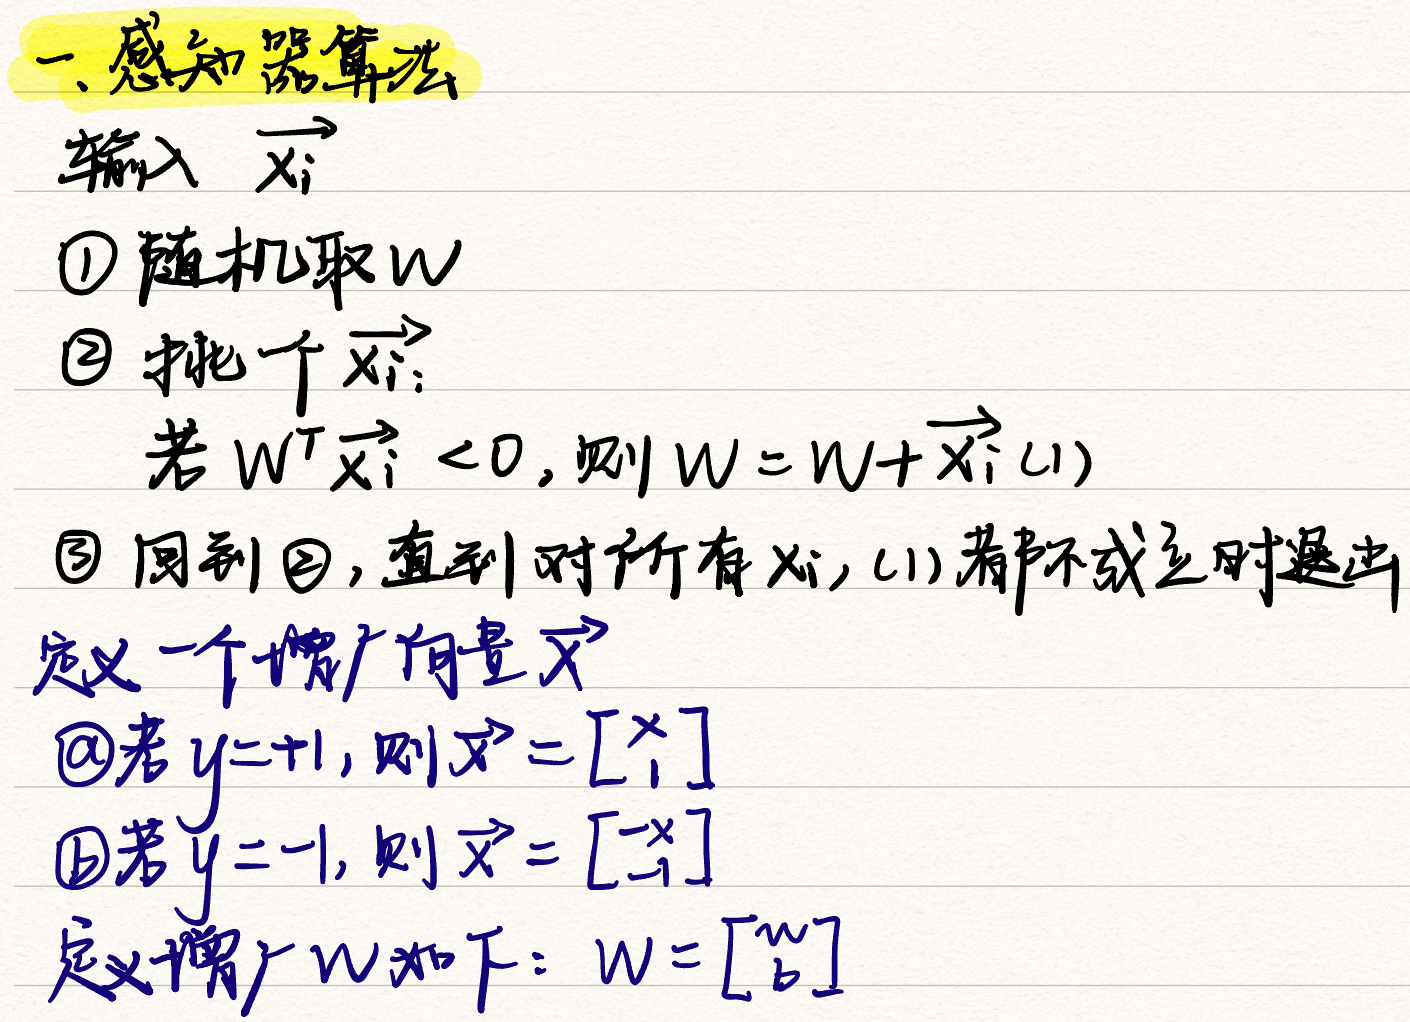 一、感知器算法
输入 $\overrightarrow{x_i}$
① 随机取W
② 挑一个 $\overrightarrow{x_i}$:
若 $W^T\overrightarrow{x_i}<0$, 则 $W=W+\overrightarrow{x_i}$ (1)
③ 回到②, 直到对所有 $x_i$, (1)都不成立时退出
定义一个增广向量 $\overrightarrow{x}$
ⓐ若 y=+1, 则 $\overrightarrow{x}=\begin{bmatrix} x \\ 1 \end{bmatrix}$
ⓑ若 y=-1, 则 $\overrightarrow{x}=\begin{bmatrix} -x \\ -1 \end{bmatrix}$
定义增广W如下: $W=\begin{bmatrix} w \\ b \end{bmatrix}$